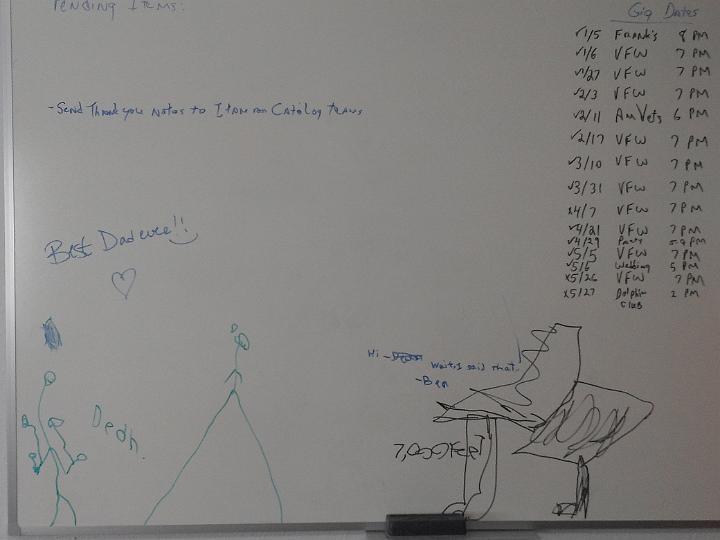 Pending Items:
Gig Dates
√1/5 Frank's 8 PM
√1/6 VFW 7 PM
√1/27 VFW 7 PM
√2/3 VFW 7 PM
√2/11 AmVets 6 PM
√2/17 VFW 7 PM
√3/10 VFW 7 PM
√3/31 VFW 7 PM
x4/7 VFW 7 PM
√4/21 VFW 7 PM
√4/29 Party PM
√5/5 VFW 7 PM
√5/6 Wedding 5 PM
x5/26 VFW 7 PM
x5/27 Dolphin 2 PM
Club
-Send Thank you Notes to Item on Catalog teams
Best Dad ever!!
Hi -
Wait, I said that.
-Ben
7,000 feet